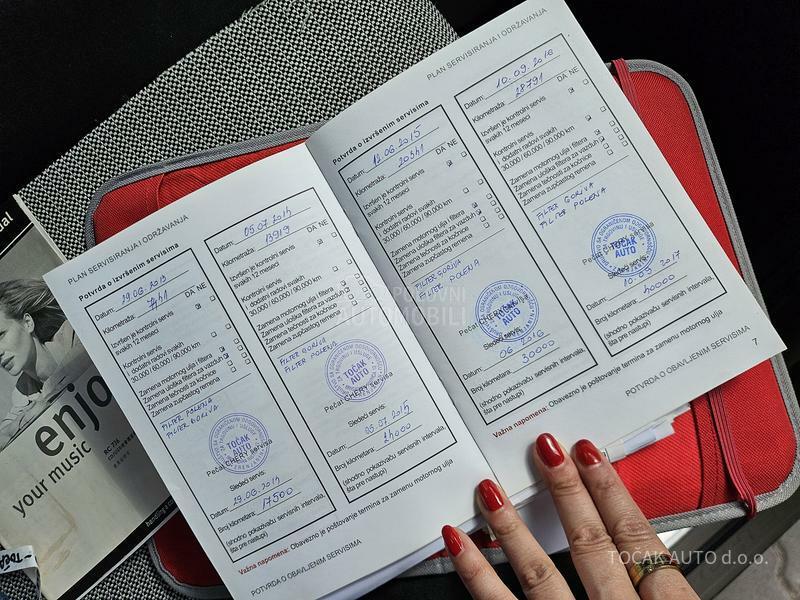 PLAN SERVISIRANJA I ODRŽAVANJA
Potvrda o izvršenim servisima
Datum:
Kilometraža:
DA NE
Izvršen je kontrolni servis
svakih 12 meseci
Kontrolni servis
i dodatni radovi svakih
30.000/ 60.000/ 90.000 km
Zamena motornog ulja i filtera
Zamena uloška filtera za vazduh
Zamena tečnosti za kočnice
Zamena zupčastog remena
FILTER POLENA
FILTER GORIVA
TOČAK
AUTO
Pečat CHERY servisa
Sledeći servis:
Datum:
Broj kilometara: 17500
(shodno pokazivaču servisnih intervala,
šta pre nastupi)
Datum: 05.07.2015
Kilometraža: 13919
DA NE
Izvršen je kontrolni servis
svakih 12 meseci
Kontrolni servis
i dodatni radovi svakih
30.000/ 60.000/ 90.000 km
Zamena motornog ulja i filtera
Zamena uloška filtera za vazduh
Zamena tečnosti za kočnice
Zamena zupčastog remena
FILTER GORIVA
FILTER POLENA
TOČAK
AUTO
Pečat CHERY servisa
Sledeći servis:
Datum:
Broj kilometara:
(shodno pokazivaču servisnih intervala,
šta pre nastupi)
Važna napomena: Obavezno je poštovanje termina za zamenu motornog ulja
POTVRDA O OBAVLJENIM SERVISIMA
PLAN SERVISIRANJA I ODRŽAVANJA
Potvrda o izvršenim servisima
Datum: 12.06.2015
Kilometraža: 20541
DA NE
Izvršen je kontrolni servis
svakih 12 meseci
Kontrolni servis
i dodatni radovi svakih
30.000/ 60.000/ 90.000 km
Zamena motornog ulja i filtera
Zamena uloška filtera za vazduh
Zamena tečnosti za kočnice
Zamena zupčastog remena
FILTER GORIVA
FILTER POLENA
TOČAK
AUTO
Pečat CHERY servisa
Sledeći servis:
Datum: 06 2016
Broj kilometara: 30000
(shodno pokazivaču servisnih intervala,
šta pre nastupi)
Datum: 10.09.2016
Kilometraža: 28791
DA NE
Izvršen je kontrolni servis
svakih 12 meseci
Kontrolni servis
i dodatni radovi svakih
30.000/ 60.000/ 90.000 km
Zamena motornog ulja i filtera
Zamena uloška filtera za vazduh
Zamena tečnosti za kočnice
Zamena zupčastog remena
FILTER GORIVA
FILTER POLENA
TOČAK
AUTO
Sledeći servis:
Datum: 10.09 2017
Broj kilometara: 40000
(shodno pokazivaču servisnih intervala,
šta pre nastupi)
Važna napomena: Obavezno je poštovanje termina za zamenu motornog ulja
POTVRDA O OBAVLJENIM SERVISIMA
7
enjo
your music
POLOVNI
AUTOMOBILI
TOČAK AUTO d.o.o.